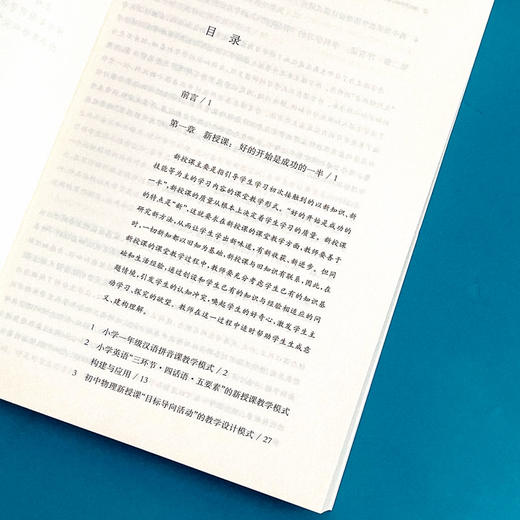 目 录
前言 / 1
第一章 新授课：好的开始是成功的一半 / 1
新授课主要是指引导学生学习初次接触到的以新知识、新
技能等为主的学习内容的课堂教学形式。“好的开始是成功的
一半”，新授课的质量从根本上决定着学生学习的质量。新授课
的特点是“新”，这就要求在新授课的课堂教学方面，教师要善于
研究新方法，从而让学生学出新味道，有新收获、新进步。但同
时，一切新知都以旧知为基础，新授课与旧知识有联系，因此，在
新授课的课堂教学过程中，教师要充分考虑学生已有的知识基
础和生活经验，通过创设和学生已有的知识与经验相适应的问
题情境，引发学生的认知冲突，唤起学生的好奇心，激发学生主
动学习、探究的欲望。教师在这一过程中适时帮助学生生成意
义、建构理解。
1 小学一年级汉语拼音课教学模式 / 2
2 小学英语“三环节·四话语·五要素”的新授课教学模式
构建与应用 / 13
3 初中物理新授课“目标导向活动”的教学设计模式 / 27